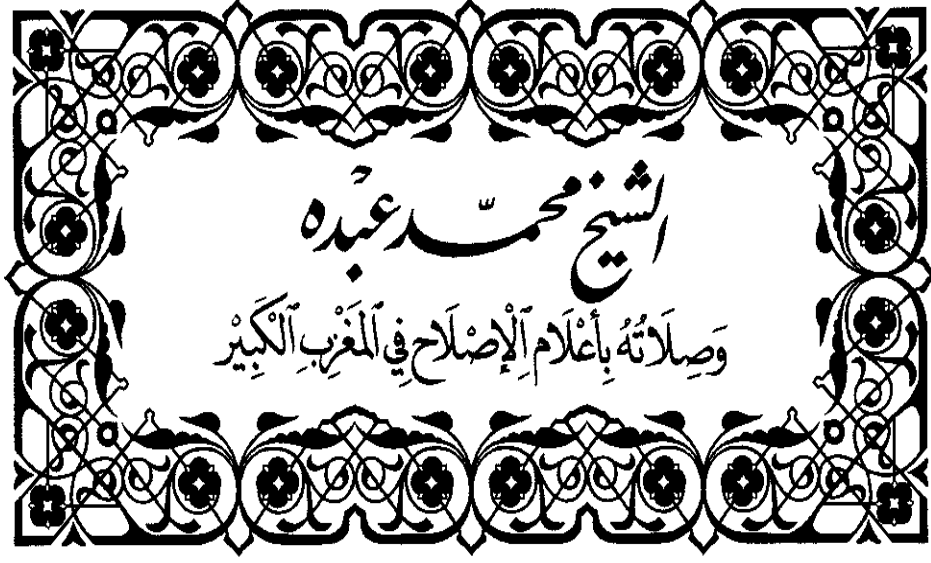 الشيخ محمّد عبْده
وَصِلَاتُهُ بِأَعْلَامِ ٱلْإِصْلَاحِ فِي ٱلْمَغْرِبِ ٱلْكَبِيْرِ